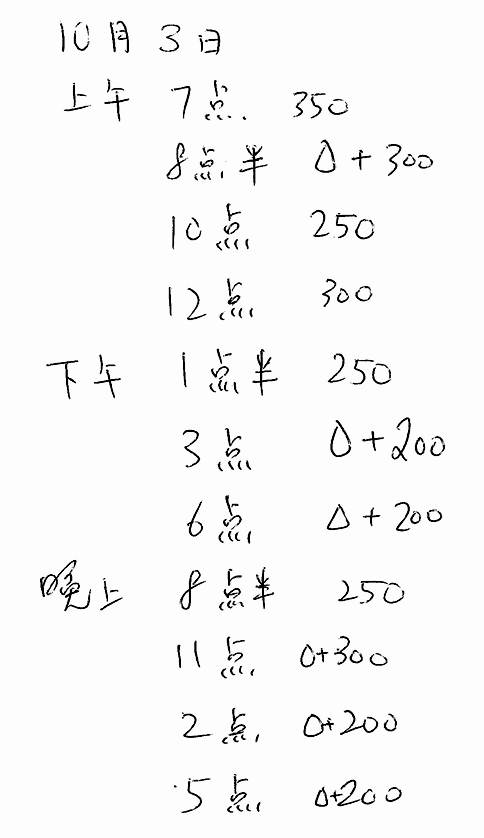 10月3日
上午 7点 350
8点半 △+300
10点 250
12点 300
下午 1点半 250
3点 △+200
6点 △+200
晚上 8点半 250
11点 △+300
2点 △+200
5点 △+200